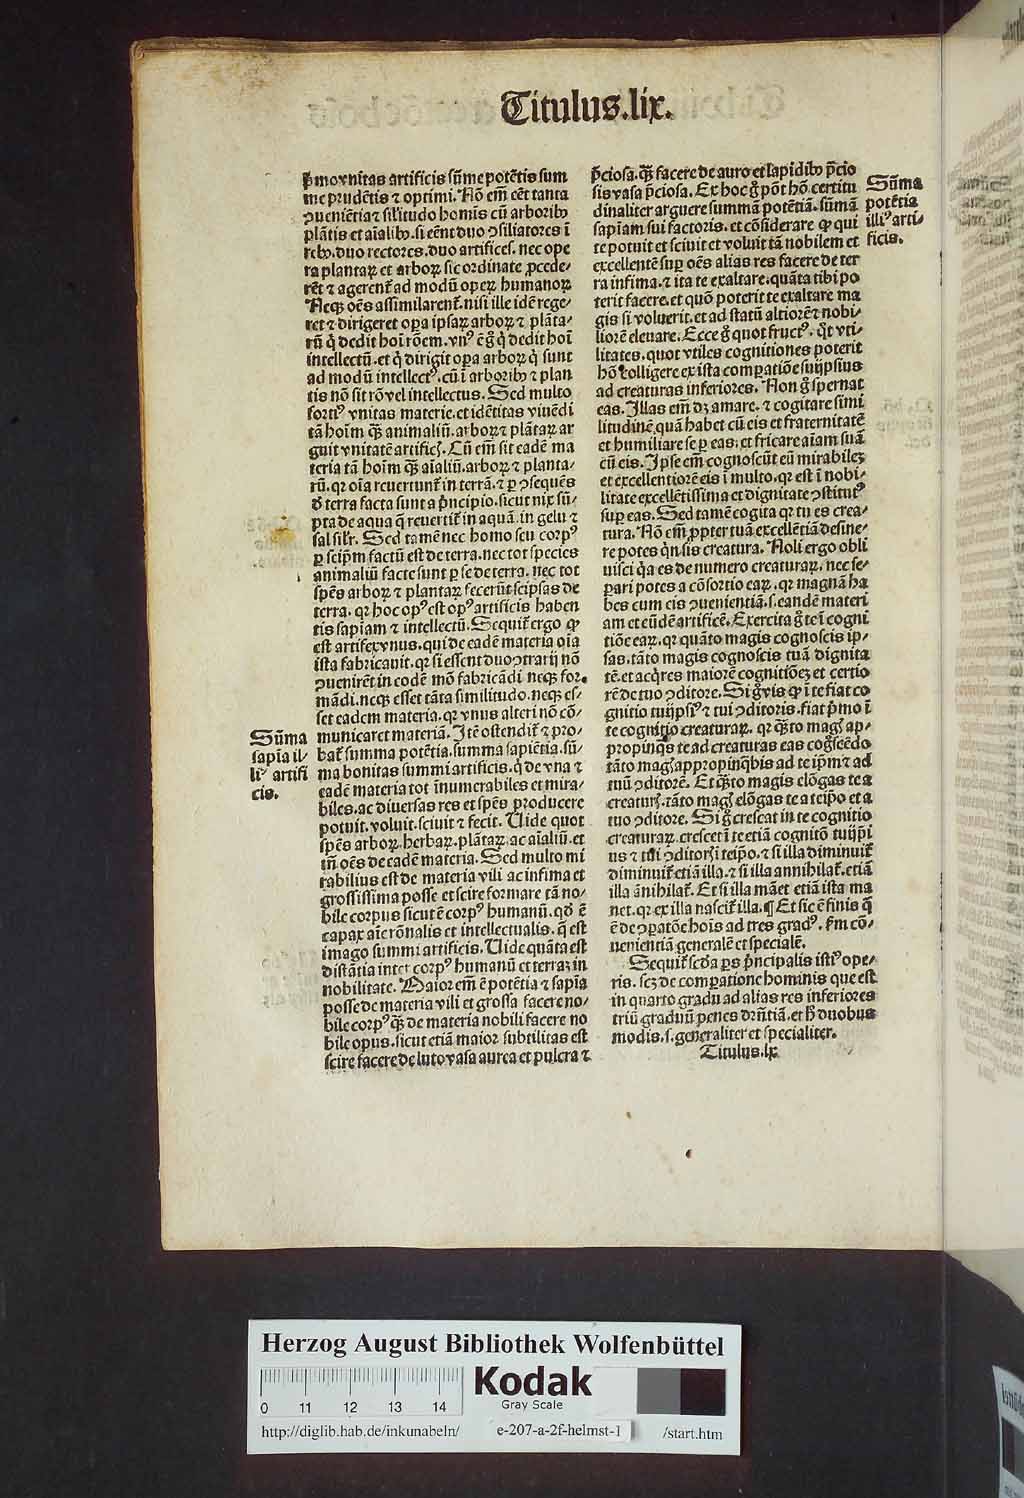 Titulus.lix.
p̃mo vnitas artificis sũme potẽtis sum
me prudẽtis ⁊ optimi. Nõ em̃ eẽt tanta
ꝯueniẽtia ⁊ sil'itudo homis cũ arboribꝰ
plãtis et aialibꝰ. si eẽnt duo ꝯsiliatores ĩ
rebꝰ. duo rectores. duo artifices. nec ope
ra plantaꝝ et arboꝝ sic ordinate ꝓcede-
rẽt ⁊ agerent̃ ad modũ opeꝝ humanoꝝ
Neqꝫ oẽs assimilarent̃. nisi ille idẽ rege-
ret ⁊ dirigeret oꝑa ipsaꝝ arboꝝ ⁊ plãta-
rũ q̇ dedit hoĩ rõem. vnꝰ ẽ g̃ q̇ dedit hoĩ
intellectũ. et q̇ dirigit oꝑa arboꝝ q̇ sunt
ad modũ intellectꝰ. cũ ĩ arboribꝰ ⁊ plan
tis nõ sit rõ vel intellectus. Sed multo
fortiꝰ vnitas materie. et idẽtitas viuẽdi
tã hoĩm qꝫ animaliũ. arboꝝ ⁊ plãtaꝝ ar
guit vnitatẽ artificꝭ. Cũ em̃ sit eadẽ ma
teria tã hoĩm qꝫ aialiũ. arboꝝ ⁊ planta-
rũ. qꝛ oĩa reuertunt̃ in terrã. ⁊ ꝑ ꝯsequẽs
d̾ terra facta sunt a p̃ncipio. sicut nix sũ-
pta de aqua q̃ reuertit̃ in aquã. in gelu ⁊
sal sil'r. Sed tamẽ nec homo seu corpꝰ
ꝑ seip̃m factũ est de terra. nec tot species
animaliũ facte sunt ꝑ se de terra. nec tot
spẽs arboꝝ ⁊ plantaꝝ fecerũt seipsas de
terra. qꝛ hoc opꝰ est opꝰ artificis haben
tis sapiam ⁊ intellectũ. Sequit̃ ergo ꝙ
est artifex vnus. qui de eadẽ materia oĩa
ista fabricauit. qꝛ si essent duo ꝯtrarij nõ
ꝯuenirẽt in eodẽ mõ fabricãdi neqꝫ for-
mãdi. neqꝫ esset tãta similitudo. neqꝫ es-
set eadem materia. qꝛ vnus alteri nõ cõ-
municaret materiã. Itẽ ostendit̃ ⁊ pro-
bat̃ summa potẽtia. summa sapiẽtia. sũ-
ma bonitas summi artificis. q̇ de vna ⁊
eadẽ materia tot innumerabiles et mira-
biles. ac diuersas res et spẽs ꝓducere
potuit. voluit. sciuit ⁊ fecit. Uide quot
spẽs arboꝝ. herbaꝝ. plãtaꝝ. ac aialiũ. et
tñ oẽs de eadẽ materia. Sed multo mi
rabilius est de materia vili ac infima et
grossissima posse et scire formare tã no-
bile corpus sicut ẽ corpꝰ humanũ. qd̾ ẽ
capax aĩe rõnalis et intellectualis. q̃ est
imago summi artificis. Uide quãta est
distãtia inter corpꝰ humanũ et terraꝫ in
nobilitate. Maior em̃ ẽ potẽtia ⁊ sapĩa
posse de materia vili et grossa facere no-
bile corpꝰ qꝫ de materia nobili facere no
bile opus. sicut etiã maior subtilitas est
scire facere de luto vasa aurea et pulcra ⁊
Sũma
sapĩa il-
liꝰ artifi
cis.
p̃ciosa. qꝫ facere de auro et lapidibꝰ p̃cio
sis vasa p̃ciosa. Ex hoc g̃ põt hõ certitu
dinaliter arguere summã potẽtiã. sũmã
sapiam sui factoris. et cõsiderare ꝙ qui
te potuit et sciuit et voluit tã nobilem et
excellentẽ suꝑ oẽs alias res facere de ter
ra infima. ⁊ ita te exaltare. quãta tibi po
terit facere. et quõ poterit te exaltare ma
gis si voluerit. et ad statũ altiorẽ ⁊ nobi-
liorẽ eleuare. Ecce g̃ quot fructꝰ. q̃t vti-
litates. quot vtiles cognitiones poterit
hõ colligere ex ista comꝑatiõe suijpsius
ad creaturas inferiores. Non g̃ spernat
eas. Illas em̃ dꝫ amare. ⁊ cogitare simi
litudinẽ. quã habet cũ eis et fraternitatẽ
et humiliare se ꝑ eas. et fricare aĩam suã
cũ eis. Ipse em̃ cognoscũt eũ mirabileꝫ
et excellentiorẽ eis ĩ multo. qꝛ est ĩ nobi-
litate excellẽtissima et dignitate ꝯstitutꝰ
suꝑ eas. Sed tamẽ cogita qꝛ tu es crea-
tura. Nõ em̃ ꝓpter tuã excellẽtiã desine-
re potes q̇n sis creatura. Noli ergo obli
uisci q̇a es de numero creaturaꝝ. nec se-
parari potes a cõsortio eaꝝ. qꝛ magnã ha
bes cum eis ꝯuenientiã. s. eandẽ materi
am et eũdẽ artificẽ. Exercita g̃ te ĩ cogni
tiõe eaꝝ. qꝛ quãto magis cognoscis ip-
sas. tãto magis cognoscis tuã dignita
tẽ. et acq̇res maiorẽ cognitiõeꝫ et certio
rẽ de tuo ꝯditore. Si g̃ vis ꝙ ĩ te fiat co
gnitio tuijpsiꝰ ⁊ tui ꝯditoris. fiat p̃mo ĩ
te cognitio creaturaꝝ. qꝛ qꝫto magꝭ ap-
propinq̃s te ad creaturas eas cog̃scẽdo
tãto magꝭ appropinq̃bis ad te ip̃m ⁊ ad
tuũ ꝯditorẽ. Et qꝫto magis elõgas te a
creaturꝭ. tãto magꝭ elõgas te a teip̃o et a
tuo ꝯditore. Si g̃ crescat in te cognitio
creaturaꝝ. crescet ĩ te etiã cognitõ tuijp̃i
us ⁊ tui ꝯditorꝭ ĩ teip̃o. ⁊ si illa diminuit̃
diminuit̃ etiã illa. ⁊ si illa annihilat̃. etiã
illa ãnihilat̃. Et si illa mãet etiã ista ma
net. qꝛ ex illa nascit̃ illa. ¶ Et sic ẽ finis q̃
ẽ de ꝯꝑatõe hoĩs ad tres gradꝰ. ẽm cõ-
uenientiã generalẽ et specialẽ.
Sequit̃ scd̾a ꝑs p̃ncipalis istiꝰ ope-
ris. scꝫ de comꝑatione hominis que est
in quarto gradu ad alias res inferiores
triũ graduũ penes drñtiã. et h̾ duobus
modis. s. generaliter et specialiter.
Titulus.lx
Sũma
potẽtia
illiꝰ arti-
ficis.
Herzog August Bibliothek Wolfenbüttel
0 11 12 13 14
Kodak
Gray Scale
http://diglib.hab.de/inkunabeln/ e-207-a-2f-helmst-1 /start.htm